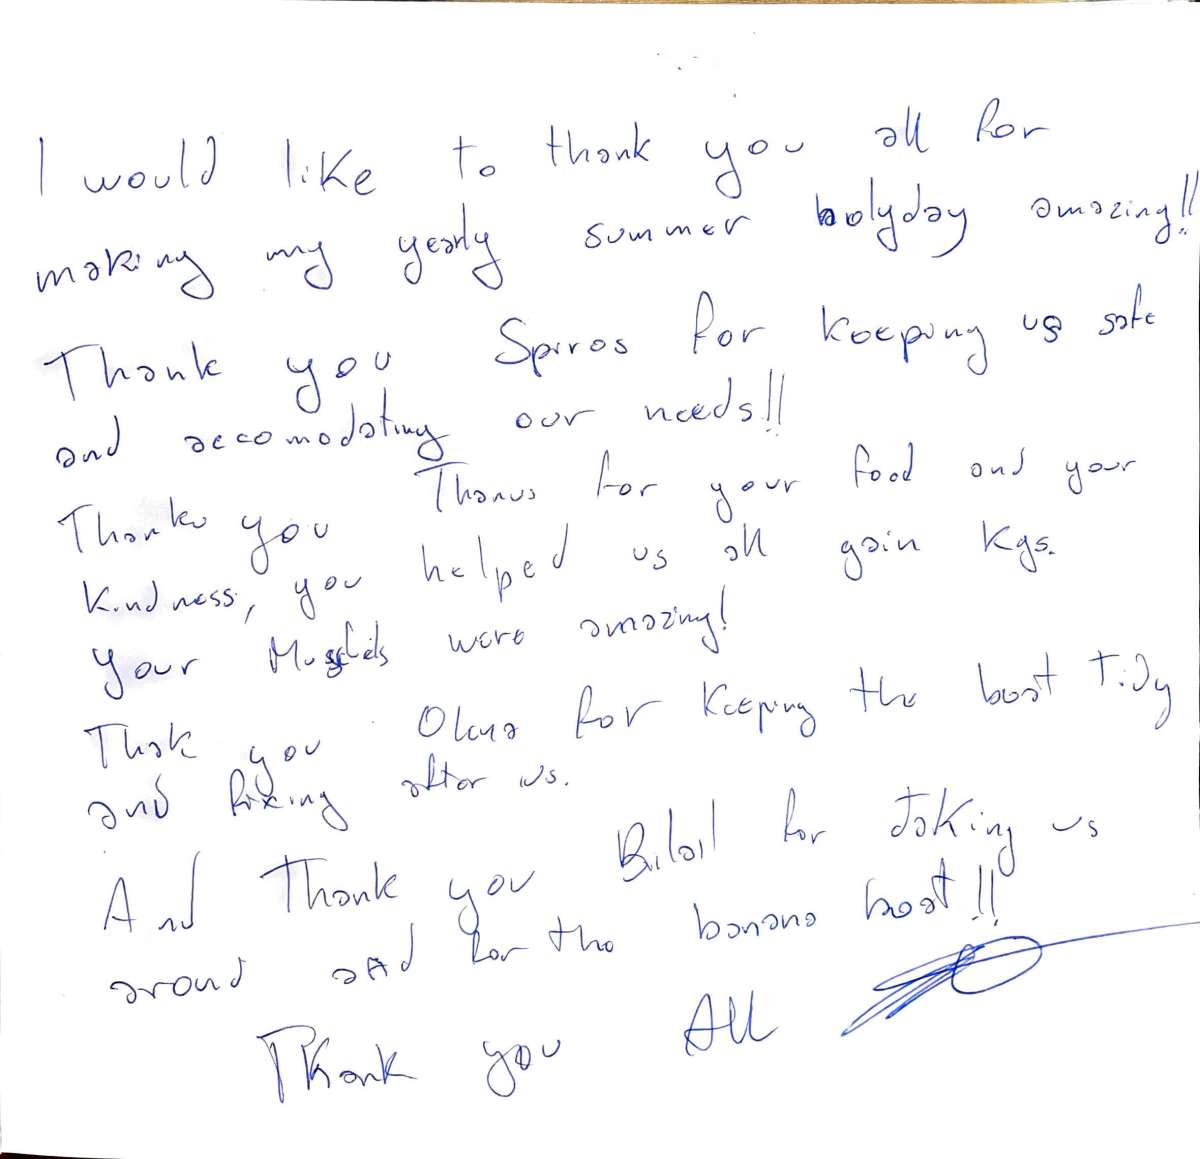 I would like to thank you all for
making my yearly summer holyday amazing!!
Thank you Spiros for keeping us safe
and accomodating our needs!!
Thanks you Thanos for your food and your
kindness, you helped us all gain kgs.
Your were amazing!
Thak you for keeping the boat tidy
and fixing after us.
And Thank you Bilail for taking us
around and for the banana boat!!
Thank you All